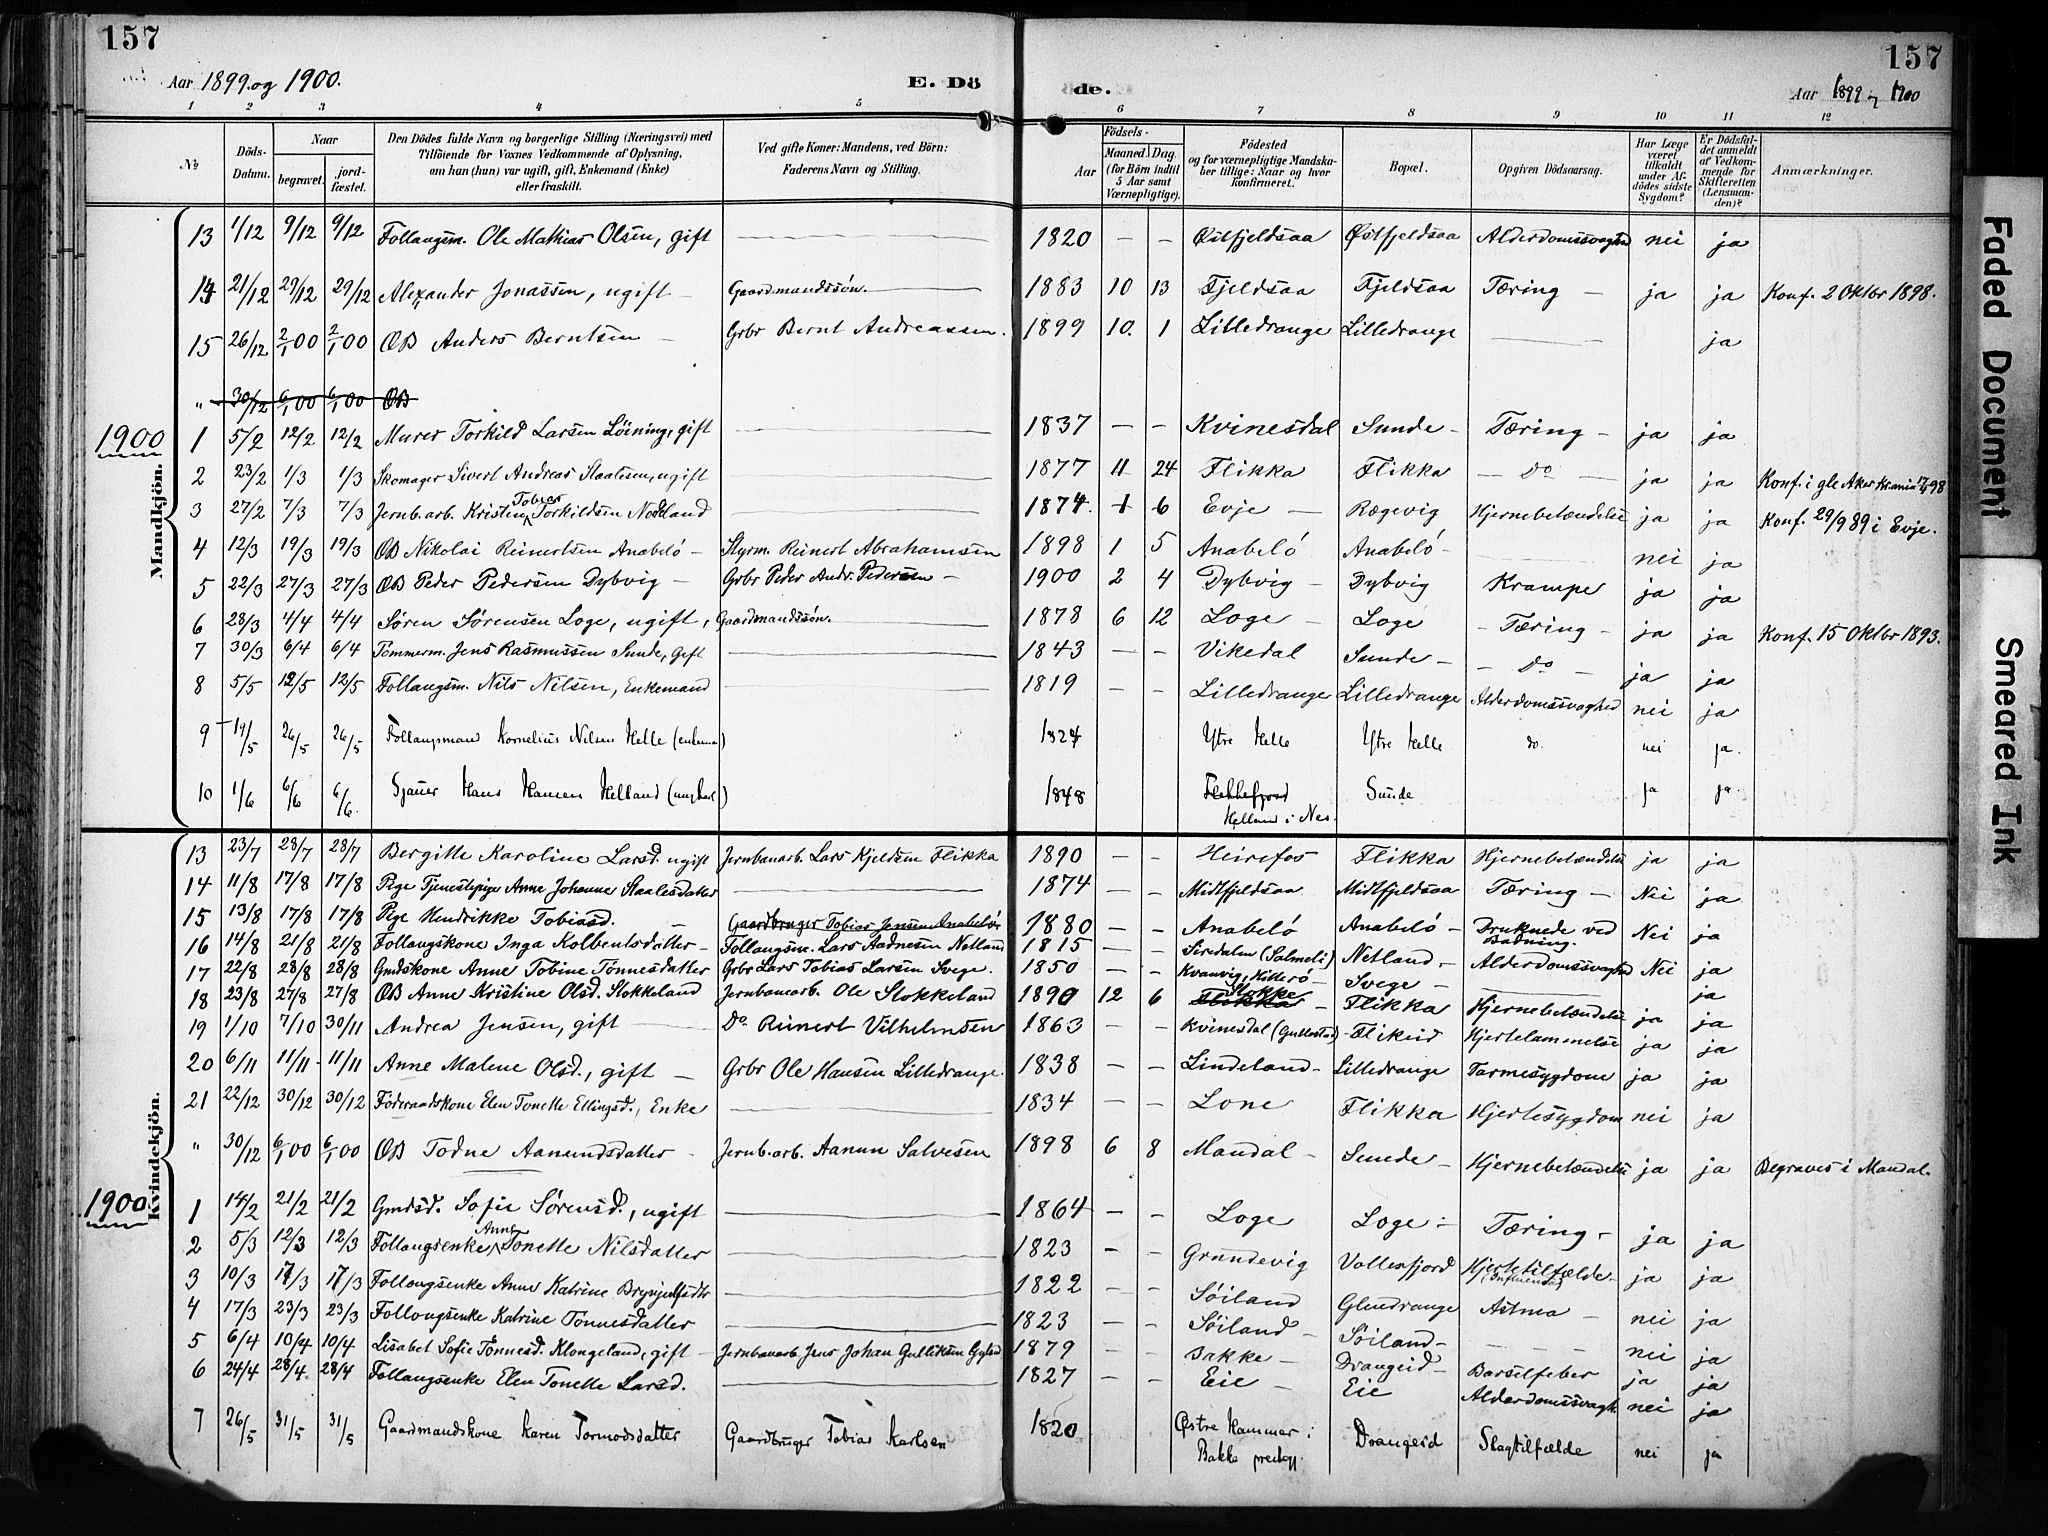 157
157
Aar 1899 og 1900.
E. Dö
de.
Aar 1899 og 1900
1 2 3 4 5 6 7 8 9 10 11 12
No
Döds-Datum.
Naar
begravet.
jord-fæstet.
Den Dödes fulde Navn og borgerlige Stilling (Næringsvei) med
Tilföiende for Voxnes Vedkommende af Oplysning,
om han (hun) var ugift, gift, Enkemand (Enke)
eller fraskilt.
Ved gifte Koner: Mandens, ved Börn:
Faderens Navn og Stilling.
Födsels-
Aar
Maaned. Dag.
(for Börn indtil
5 Aar samt
Værnepligtige).
Födested
og for værnepligtige Mandska-
ber tillige: Naar og hvor
konfirmeret.
Bopæl.
Opgiven Dödsaarsag.
Har Læge
været
tilkaldt
under Af-
dödes sidste
Sygdom?
Er Dödsfal-
det anmeldt
af Vedkom-
mende for
Skifteretten
(Lensman-
den)?
Anmærkninger.
Mandkjön.
13 1/12 9/12 9/12 Follaugsm. Ole Mathias Olsen, gift 1820 – – Østfjeldsaa Østfjeldsaa Alderdomssvaghed nei ja
14 21/12 29/12 29/12 Alexander Jonassen, ugift – Gaardmandssøn. 1883 10 13 Fjeldsaa Fjeldsaa Tæring – ja ja Konf. 2 Oktbr 1898.
15 26/12 2/1 00 2/1 00 ØB Anders Berntsen – Grbr Bernt Andreassen. 1899 10. 1 Lilledrange Lilledrange ja
" 30/12 6/1 00 6/1 00 ØB
1900
1 5/2 12/2 12/2 Murer Torkild Larsen Löining, gift 1837 – – Kvinesdal Sunde – Tæring – ja ja
2 23/2 1/3 1/3 Skomager Sivert Andreas Staalesen, ugift 1877 11 24 Flikka Flikka – Do – ja ja Konf. i gle Aker Krania 98
3 27/2 7/3 7/3 Jernb. arb. Kristen Tobias Torkildsen Nodland 1874 1 6 Evje – Rægevig Hjernebetændelse ja ja Konf. 29/9 89 i Evje.
4 12/3 19/3 19/3 ØB Nikolai Reinertsen Anabelö – Styrm. Reinert Abrahamsen 1898 1 5 Anabelö Anabelö – nei ja
5 22/3 27/3 27/3 ØB Peder Pedersen Dybvig – Grbr Peder Andr. Pedersen – 1900 2 4 Dybvig – Dybvig Krampe ja ja
6 28/3 4/4 4/4 Søren Sørensen Loge, ugift, Gaardmandssøn. 1878 6 12 Loge – Loge – Tæring – ja ja Konf. 15 Oktbr 1893.
7 30/3 6/4 6/4 Tømmerm. Jens Rasmussen Sunde, gift 1843 – – Vikedal Sunde – – Do – ja ja
8 5/5 12/5 12/5 Follaugsm. Nils Nilsen, Enkemand 1819 – – Lilledrange Lilledrange Alderdomssvaghed nei ja
9 19/5 26/5 26/5 Follaugsmand Kornelius Nilsen Helle (enkem) 1824 Ytre Helle Ytre Helle do. nei ja.
10 1/6 6/6 6/6 Sjauer Hans Hansen Helland (ungkarl) 1848 Flekkefjord Helland i Nes. Sunde ja ja.
Kvindekjön.
13 23/7 28/7 28/7 Bergitte Karoline Larsd. ugift Jernbanarb. Lars Kjeldsen Flikka 1890 – – Heirefos Flikka Hjernebetændelse ja ja
14 11/8 17/8 17/8 Pige Tjenestepige Anne Johanne Staalesdatter 1874 – – Midtfjeldsaa Midtfjeldsaa Tæring – Nei ja
15 13/8 17/8 17/8 Pige Hendrikke Tobiasd. Gaardbruger Tobias Jensen Anabelö 1880 – – Anabelö Anabelö – Druknede ved Badning. Nei ja
16 14/8 21/8 21/8 Follaugskone Inga Kolbentsdatter – Follaugsm. Lars Aadnesen Netland 1815 – – Sirdalen (Salmeli) Netland – Alderdomssvaghed Nei ja
17 22/8 28/8 28/8 Gmdskone Anne Tobine Tönnesdatter Grbr Lars Tobias Larsen Svege. 1850 – – Kvanvig, Hitterö Svege – ja
18 23/8 27/8 27/8 ØB Anne Kristine Olsd. Stokkeland Jernbanearb. Ole Stokkeland 1890 12 6 Flikka Stokke – Flikka Hjernebetændelse ja ja
19 1/10 7/10 30/11 Andrea Jensen, gift Do Reinert Vilhelmsen 1863 – – Kvinesdal (Gullestad) – Flikeid Hjertelammelse ja ja
20 6/11 11/11 11/11 Anne Malene Olsd., gift – Grbr Ole Hansen Lilledrange. 1838 – – Lindeland – Lilledrange Tarmesygdom ja ja
21 22/12 30/12 30/12 Föderaadskone Elen Tonette Ellingsd., Enke 1834 – – Lone Flikka Hjertesygdom nei ja
" 30/12 6/1 00 6/1 00 ØB Todne Aanundsdatter – Jernb. arb. Aanun Salvesen 1898 6 8 Mandal – Sunde – Hjernebetændelse ja ja Begraves i Mandal.
1900
1 14/2 21/2 21/2 Gmdsd. Sofie Sörensd., ugift 1864 – – Loge Loge – Tæring – ja ja
2 5/3 12/3 12/3 Follaugsenke Anne Tonette Nilsdatter 1823 – – Grundevig Vollesfjord Hjertetilfælde – (Influenza) ja ja
3 10/3 17/3 17/3 Follaugsenke Anne Katrine Brynjulfsdtr 1822 – – Søiland Glendrange Astma – nei ja
4 17/3 23/3 23/3 Follaugsenke Katrine Tönnesdatter 1823 – – Søiland – Søiland – nei ja
5 6/4 10/4 10/4 Lisabet Sofie Tönnesd. Klongeland, gift – Jernbanarb Jens Johan Gulliksen 1879 – – Bakke – Drangeid – Barselfeber ja ja
6 24/4 28/4 28/4 Follaugsenke Elen Tonette Larsd. 1827 – – Eie – Eie Alderdomssvagh. nei ja
7 26/5 31/5 31/5 Gaardmandskone Karen Tormodsdatter Gaardbruger Tobias Karlsen 1820 Østre Hammer i Bakke prestegj. Drangeid Slagtilfælde nei ja
Faded Document
Smeared Ink